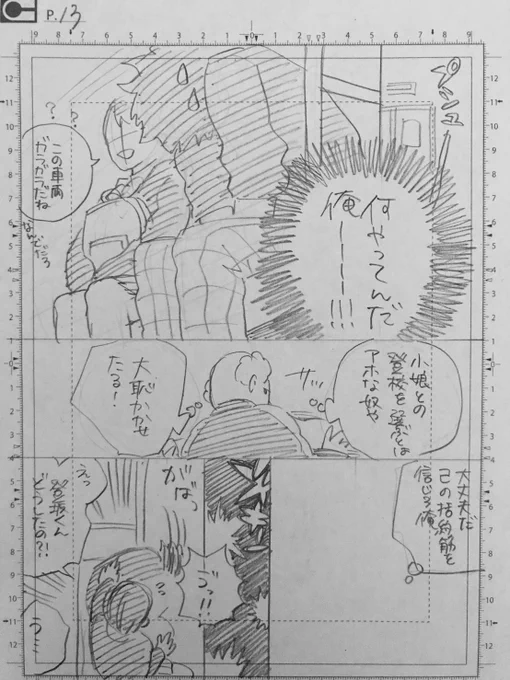 P.13
何やってんだ
俺ーーー!!!
この車両
ガラガラだね
なんでだろ
小娘との
登校を選ぶとは
アホな奴や
サッ
大恥かかせ
たる!
大丈夫だ
己の括約筋を
信じろ俺
がばっ
ゔっ!!
えっ
登坂くん
どうしたの?!
う…